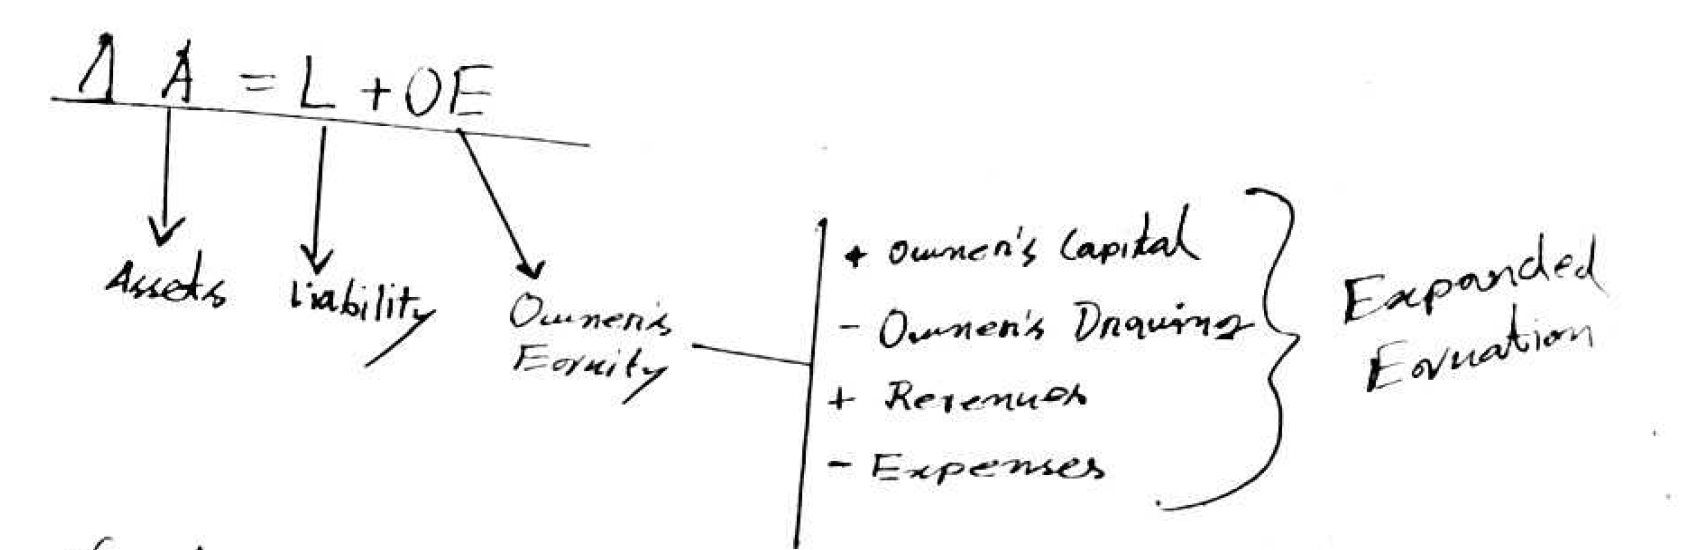 Δ A = L + OE
Assets
Liability
Owner's
Equity
+ Owner's Capital
- Owner's Drawing
+ Revenues
- Expenses
Expanded
Equation